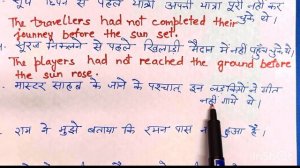 सूर्य छिपने से पहले यात्री अपनी यात्रा पूरी नहीं कर
चुके थे।
The travellers had not completed their
journey before the sun set.
सूरज निकलने से पहले खिलाड़ी मैदान में नहीं पहुँच चुके थे।
The players had not reached the ground before
the sun rose.
मास्टर साहब के जाने के पश्चात् इन लड़कियों ने गीत
नहीं गाये थे।
राम ने मुझे बताया कि रमन पास हुआ है।